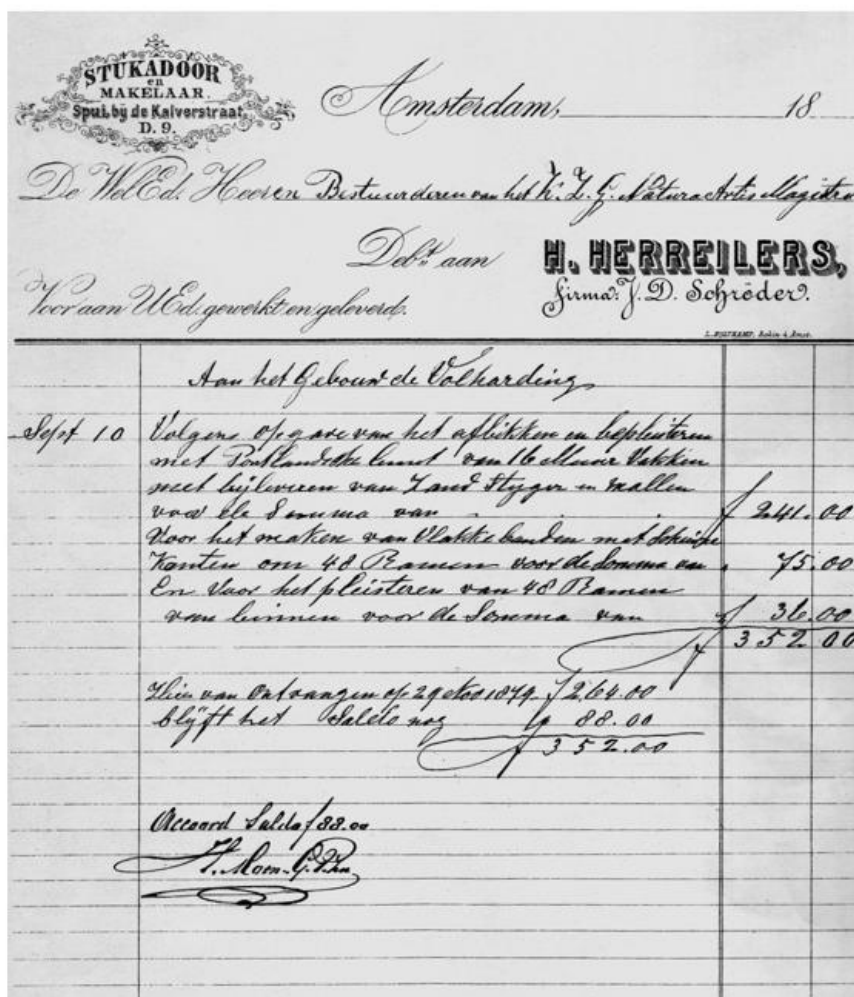 STUKADOOR
en
MAKELAAR.
Spui, bij de Kalverstraat,
D. 9.
Amsterdam, 18
De WelEd. Heeren Bestuurderen van het K. Z. G. Natura Artis Magistra
Debt. aan H. HERREILERS,
Firma: J. D. Schröder.
Voor aan UEd. gewerkt en geleverd.
Aan het Gebouw de Volharding
Sept 10 Volgens opgave van het afbikken en bepleisteren
met Portlandsche van 16 Muur Vakken
met bijleveren van Zand Styger en mallen
voor de Somma van f 241.00
Voor het maken van Vlakke banden met Schuine
Kanten om 48 Ramen voor de Somma van 75.00
En Voor het pleisteren van 48 Ramen
van binnen voor de Somma van f 36.00
f 352 00
Hier van Ontvangen op 29 1879 f 264.00
blijft het Saldo nog 88.00
f 352.00
Accoord Saldo f 88.00